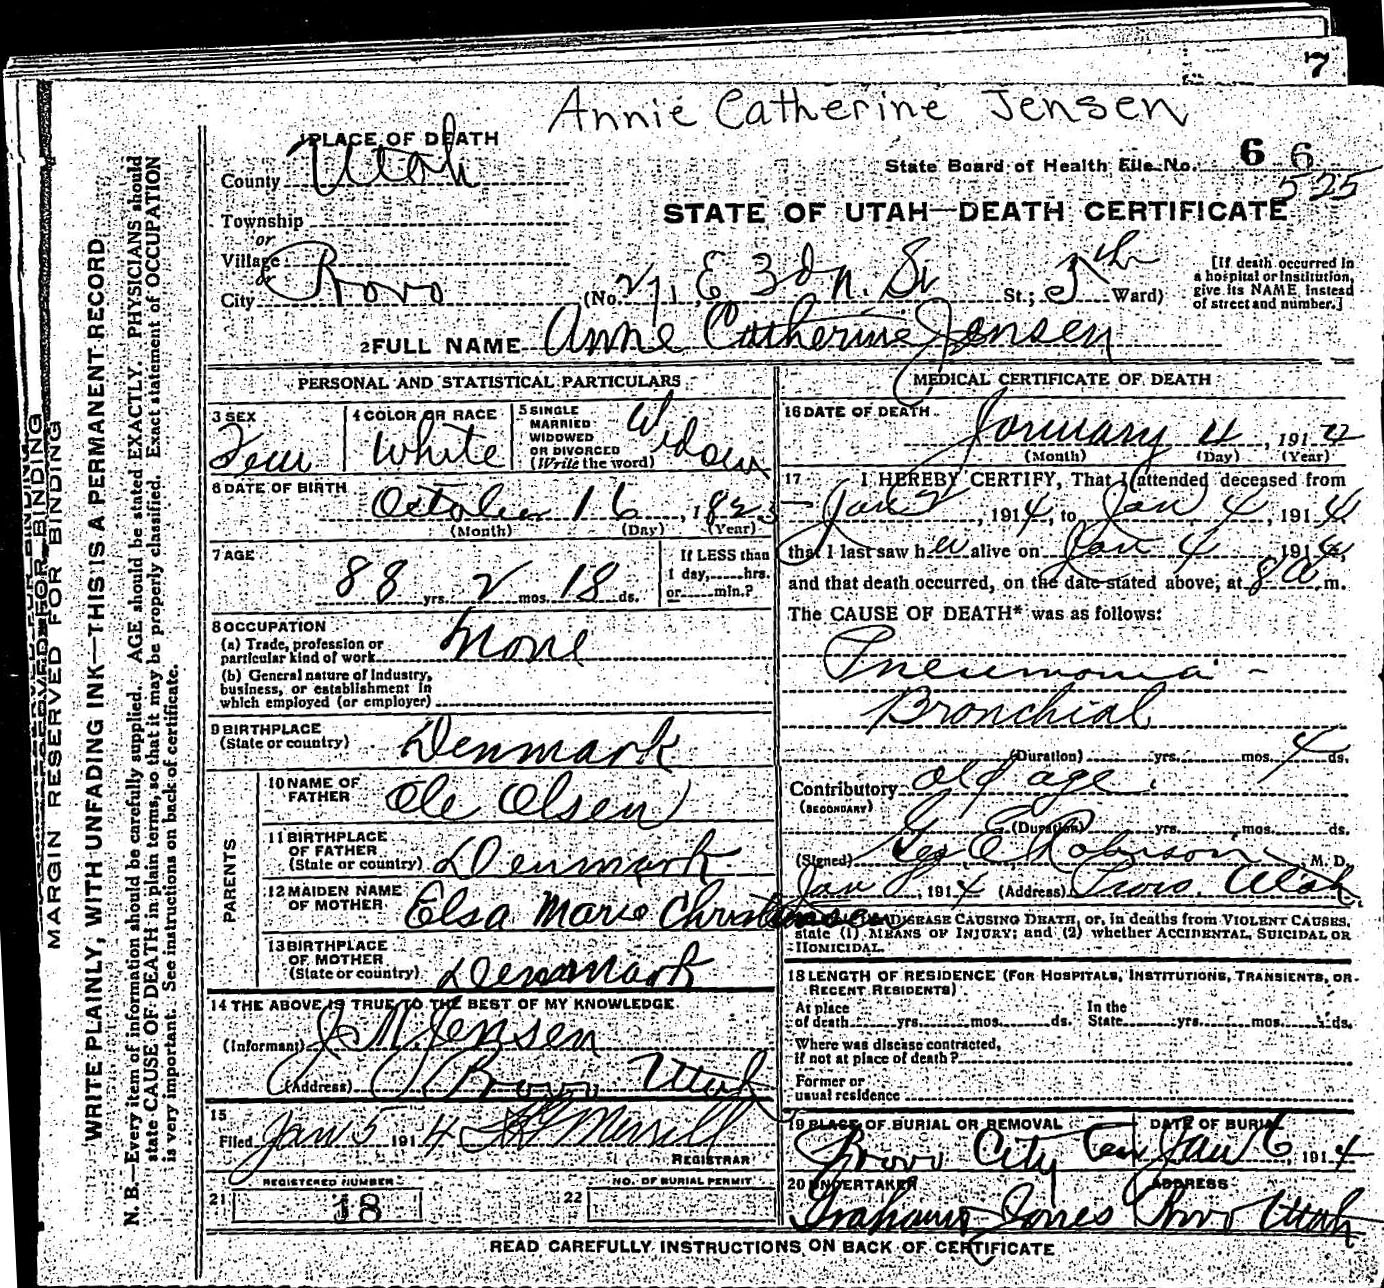 7
Annie Catherine Jensen
1 PLACE OF DEATH
County Utah
State Board of Health File No. 6 6
525
Township
or
Village
or
City Provo
STATE OF UTAH—DEATH CERTIFICATE
(No. 271 E 3d N. St.; 5th Ward)
[If death occurred in a hospital or institution, give its NAME instead of street and number.]
2 FULL NAME Anne Catherine Jensen
PERSONAL AND STATISTICAL PARTICULARS
3 SEX
Fem
4 COLOR OR RACE
White
5 SINGLE
MARRIED
WIDOWED
OR DIVORCED
(Write the word)
Widow
6 DATE OF BIRTH
October 16, 1825
(Month) (Day) (Year)
7 AGE
88 yrs. 2 mos. 18 ds.
If LESS than
1 day, hrs.
or min.?
8 OCCUPATION
(a) Trade, profession or
particular kind of work None
(b) General nature of industry,
business, or establishment in
which employed (or employer)
9 BIRTHPLACE
(State or country) Denmark
PARENTS
10 NAME OF
FATHER Ole Olsen
11 BIRTHPLACE
OF FATHER
(State or country) Denmark
12 MAIDEN NAME
OF MOTHER Elsa Marie
13 BIRTHPLACE
OF MOTHER
(State or country) Denmark
14 THE ABOVE IS TRUE TO THE BEST OF MY KNOWLEDGE
(Informant) J M Jensen
(Address) Provo, Utah
15
Filed Jan 5 1914 Merrill
REGISTRAR
21 REGISTERED NUMBER
18
22 NO. OF BURIAL PERMIT
MEDICAL CERTIFICATE OF DEATH
16 DATE OF DEATH
January 4, 1914
(Month) (Day) (Year)
17 I HEREBY CERTIFY, That I attended deceased from
Jan 2, 1914, to Jan 4, 1914
that I last saw her alive on Jan 4 1914,
and that death occurred, on the date stated above, at 8 a. m.
The CAUSE OF DEATH* was as follows:
Pneumonia -
Bronchial
(Duration) yrs. mos. 4 ds.
Contributory old age.
(SECONDARY)
(Duration) yrs. mos. ds.
(Signed) Geo E Robinson, M. D.
Jan 1914 (Address) Provo, Utah
DISEASE CAUSING DEATH, or, in deaths from VIOLENT CAUSES,
state (1) MEANS OF INJURY; and (2) whether ACCIDENTAL, SUICIDAL OR
HOMICIDAL.
18 LENGTH OF RESIDENCE (FOR HOSPITALS, INSTITUTIONS, TRANSIENTS, OR
RECENT RESIDENTS)
At place
of death yrs. mos. ds.
In the
State yrs. mos. ds.
Where was disease contracted,
if not at place of death?
Former or
usual residence
19 PLACE OF BURIAL OR REMOVAL
Provo City Cem
DATE OF BURIAL
Jan 6, 1914
20 UNDERTAKER
Jones
ADDRESS
Provo Utah
READ CAREFULLY INSTRUCTIONS ON BACK OF CERTIFICATE
MARGIN RESERVED FOR BINDING
WRITE PLAINLY, WITH UNFADING INK—THIS IS A PERMANENT RECORD
N. B.—Every item of information should be carefully supplied. AGE should be stated EXACTLY. PHYSICIANS should
state CAUSE OF DEATH in plain terms, so that it may be properly classified. Exact statement of OCCUPATION
is very important. See instructions on back of certificate.